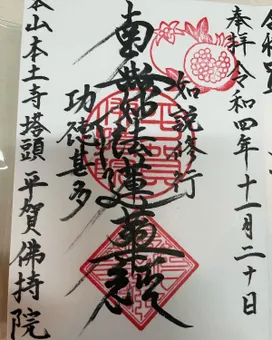 奉拝令和四年十一月二十日
如説修行
南無妙法蓮華経
功徳甚多
本山本土寺塔頭 平賀佛持院